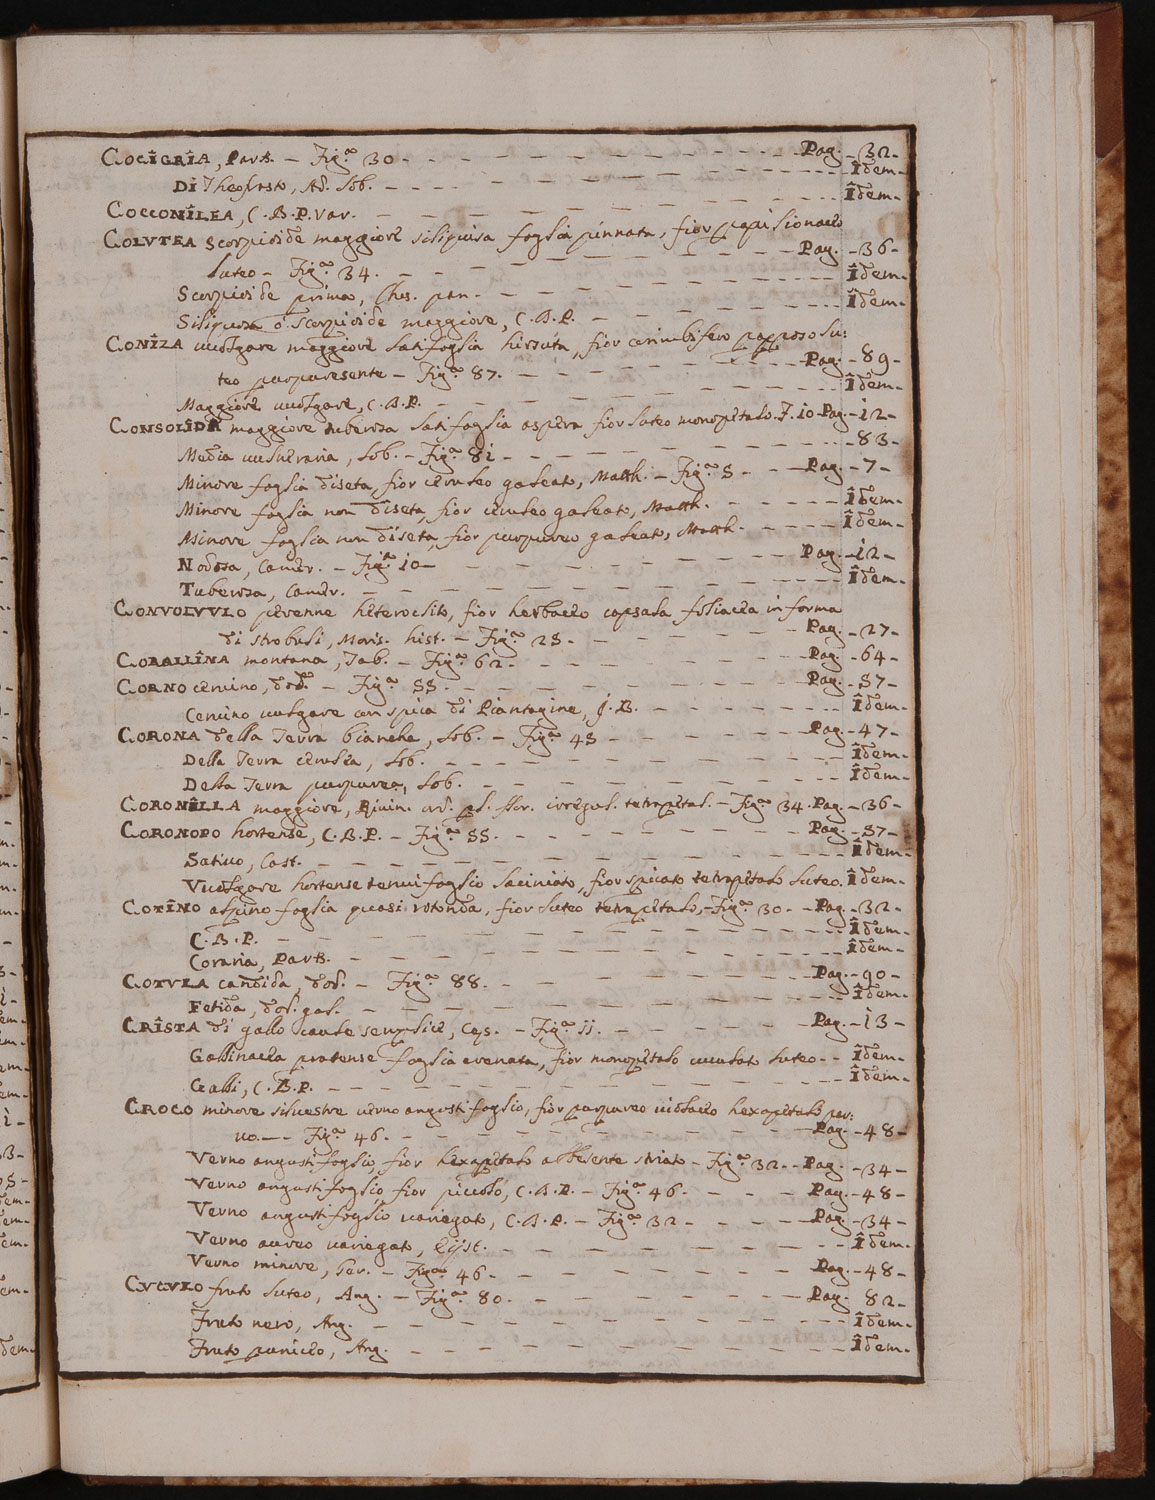 COCÎGRÎA, Park. – Fig.ª 30 – Pag. – 32 –
DI Theofrasto, Ad. Lob. – Îdem –
COCCONÎLEA, C. B. P. Var. – Îdem –
COLVTEA scorpioide maggiore siliquisa foglia pinnata, fior papilionaceo
luteo – Fig.ª 34. – Pag. – 36 –
Scorpioide prima, Clus. pan. – Îdem –
Siliquosa ò Scorpioide maggiore, C. B. P. – Îdem –
CONÎZA uulgare maggiore latifoglia hirsuta, fior corimbifero papposo lu:
teo purpuresente – Fig.ª 87. – Pag. – 89 –
Maggiore uulgare, C. B. P. – Îdem –
CONSOLÎDA maggiore tuberosa latifoglia aspera fior luteo monopetalo. F. 10 – Pag. – 12 –
Media uulneraria, Lob. – Fig.ª 81 – – 83 –
Minore foglia diseta, fior ceruleo galeato, Matth. – Fig.ª 5 – Pag. – 7 –
Minore foglia non diseta, fior ceruleo galeato, Matth. – Îdem –
Minore foglia non diseta, fior purpureo galeato, Matth. – Îdem –
Nodosa, Camer. – Fig.ª 10 – Pag. – 12 –
Tuberosa, Camer. – Îdem –
CONVOLVVLO perenne heteroclito, fior herbaceo capsula foliacea in forma
di strobuli, Moris. hist. – Fig.ª 25 – Pag. – 27 –
CORALLÎNA montana, Tab. – Fig.ª 62 – Pag. – 64 –
CORNO ceruino, dod.º – Fig.ª 55 – Pag. – 57 –
Ceruino uulgare con spica di Piantagine, J. B. – Îdem –
CORONA della Terra bianche, Lob. – Fig.ª 45 – Pag. – 47 –
Della Terra cerulea, Lob. – Îdem –
Della Terra purpurea, Lob. – Îdem –
CORONÎLLA maggiore, Riuin. ord. pl. flor. irregul. tetrapetal. – Fig.ª 34. Pag. – 36 –
CORONOPO hortense, C. B. P. – Fig.ª 55. – Pag. – 57 –
Satiuo, Cast. – Îdem –
Vuolgare hortense tenuifoglio laciniato, fior spicato tetrapetalo luteo. Îdem –
COTÎNO alpino foglia quasi rotonda, fior luteo tetrapetalo, – Fig.ª 30 – Pag. – 32 –
C. B. P. – Îdem –
Coraria, Park. – Îdem –
COTVLA candida, dod. – Fig.ª 88. – Pag. – 90 –
Fetida, dod. gal. – Îdem –
CRÎSTA di gallo caule semplice, Cęs. – Fig.ª 11. – Pag. – 13 –
Gallinacea pratense foglia crenata, fior monopetalo cucullato luteo – Îdem –
Galli, C. B. P. – Îdem –
CROCO minore siluestre uerno angustifoglio, fior purpureo uiolaceo hexapetalo par:
uo. – Fig.ª 46. – Pag. – 48 –
Verno angustifoglio, fior hexapetalo albesente striato – Fig.ª 32 – Pag. – 34 –
Verno angustifoglio fior piccolo, C. B. P. – Fig.ª 46 – Pag. – 48 –
Verno angustifoglio uariegato, C. B. P. – Fig.ª 32 – Pag. – 34 –
Verno aureo uariegato, Eijst. – Îdem –
Verno minore, Gar. – Fig.ª 46 – Pag. – 48 –
CVCVLO fruto luteo, Ang. – Fig.ª 80. – Pag. 82 –
Fruto nero, Ang. – Îdem –
Fruto puniceo, Ang. – Îdem –